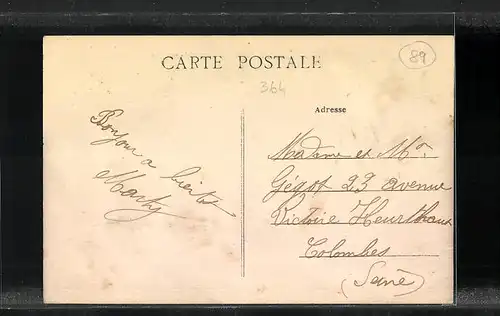 CARTE POSTALE
89
364
Adresse
Bonjour a
bientot
Marthy
Madame et Mr.
Gégot 23 avenue
Victoire Heurthaux
Colombes
(Seine)